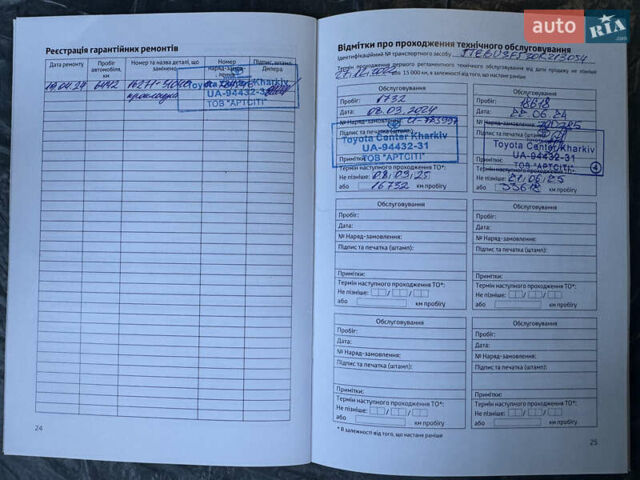 auto RIA.com
Реєстрація гарантійних ремонтів
Дата ремонту
Пробіг автомобіля, км
Номер та назва деталі, що замінено
Номер
Підпис, штамп Дилера
19.04.24 6442
прокладка
Toyota Center Kharkiv
UA-94432-31
ТОВ "АРТСІТІ"
24
Відмітки про проходження технічного обслуговування
Ідентифікаційний № транспортного засобу
Термін проходження першого регламентного технічного обслуговування від дати продажу не пізніше
або 15 000 км, в залежності від того, що настане раніше
Обслуговування
Пробіг: 1732
Дата: 08.03.2024
№ Наряд-замовлення:
Підпис та печатка (штамп):
Toyota Center Kharkiv
UA-94432-31
ТОВ "АРТСІТІ"
Примітки:
Термін наступного проходження ТО*:
Не пізніше: 08.03.25
або 16732 км пробігу
Обслуговування
Пробіг: 18618
Дата: 22.06.24
№ Наряд-замовлення:
Підпис та печатка (штамп):
Toyota Center Kharkiv
UA-94432-31
ТОВ "АРТСІТІ"
4
Примітки:
Термін наступного проходження ТО*:
Не пізніше: 21.06.25
або 33618 км пробігу
Обслуговування
Пробіг:
Дата:
№ Наряд-замовлення:
Підпис та печатка (штамп):
Примітки:
Термін наступного проходження ТО*:
Не пізніше:
або км пробігу
Обслуговування
Пробіг:
Дата:
№ Наряд-замовлення:
Підпис та печатка (штамп):
Примітки:
Термін наступного проходження ТО*:
Не пізніше:
або км пробігу
Обслуговування
Пробіг:
Дата:
№ Наряд-замовлення:
Підпис та печатка (штамп):
Примітки:
Термін наступного проходження ТО*:
Не пізніше:
або км пробігу
Обслуговування
Пробіг:
Дата:
№ Наряд-замовлення:
Підпис та печатка (штамп):
Примітки:
Термін наступного проходження ТО*:
Не пізніше:
або км пробігу
* В залежності від того, що настане раніше
25